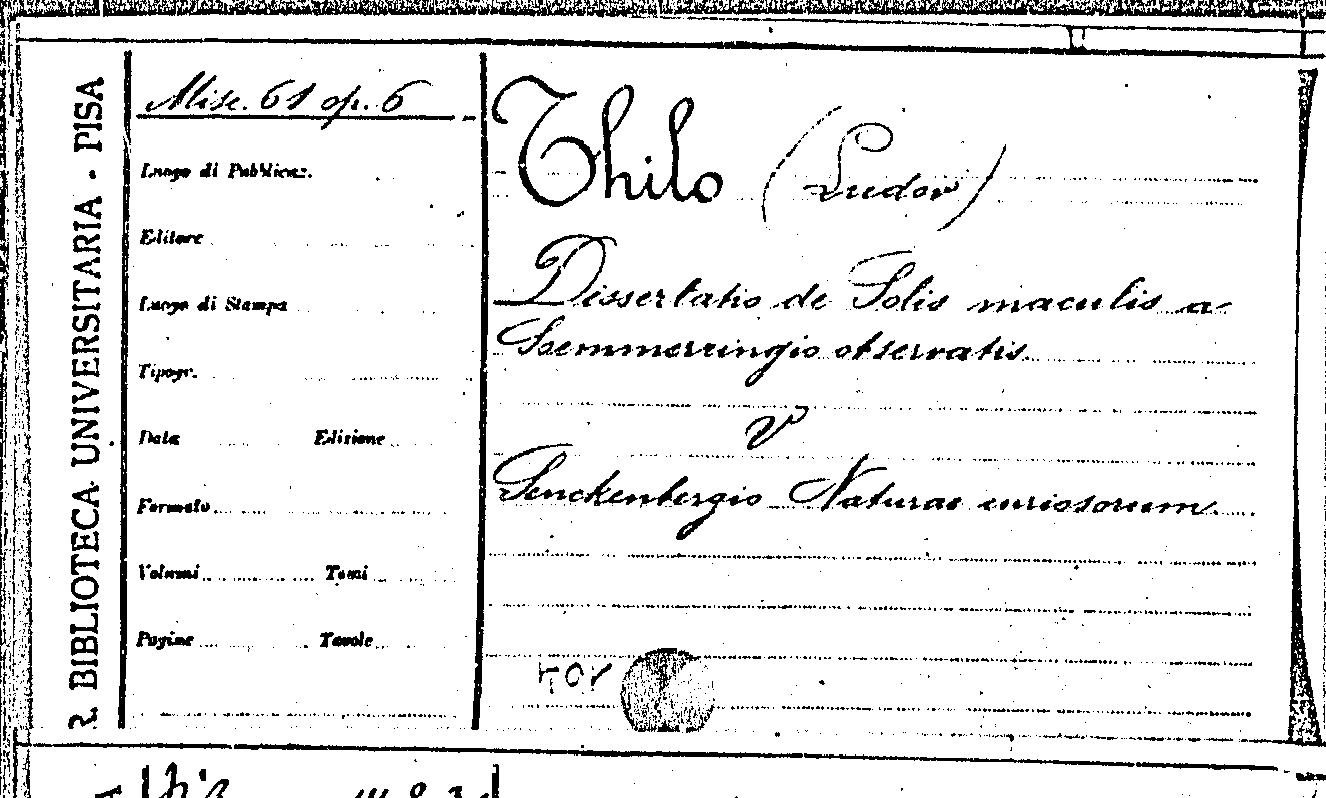 R. BIBLIOTECA UNIVERSITARIA - PISA
Misc. 61 op. 6
Luogo di Pubblicaz.
Editore
Luogo di Stampa
Tipogr.
Data Edizione
Formato
Volumi Tomi
Pagine Tavole
Thilo (Ludov)
Dissertatio de Solis maculis a
Soemmerringio observatis
V
Senckenbergio Naturae curiosorum